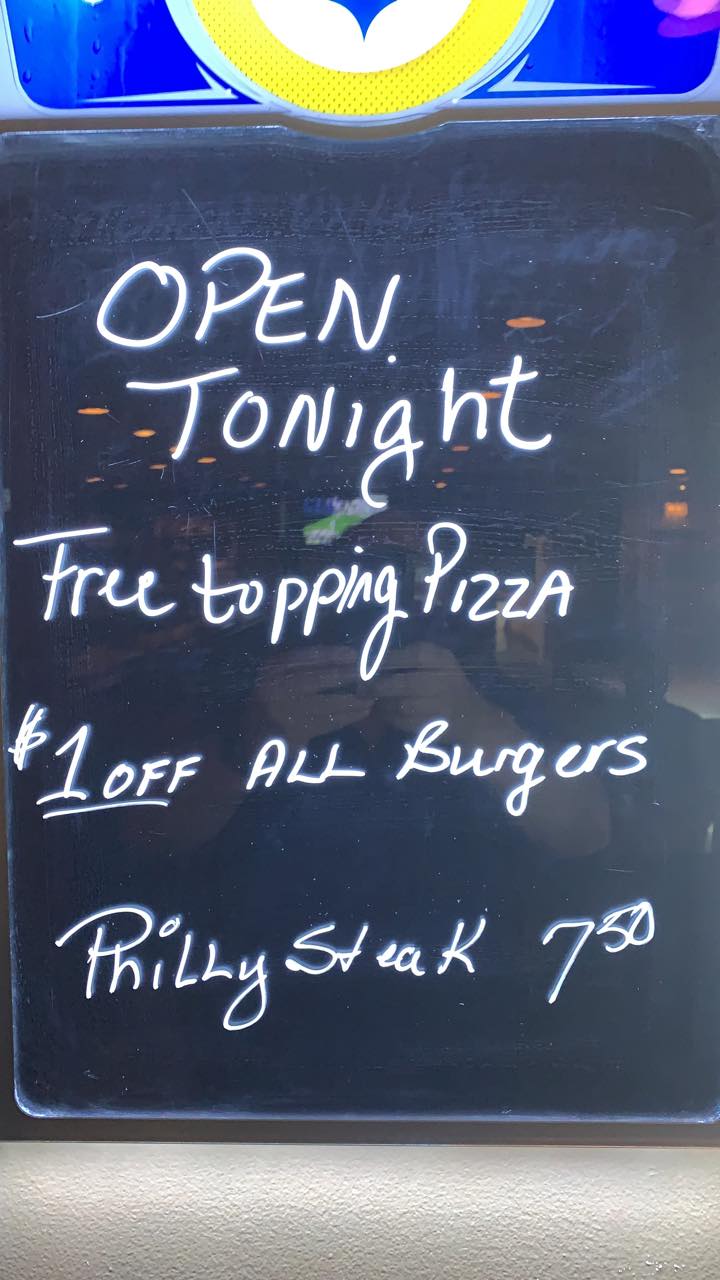 OPEN
TONight
Free topping PIZZA
$1 OFF ALL Burgers
PhiLLy Steak 7 50